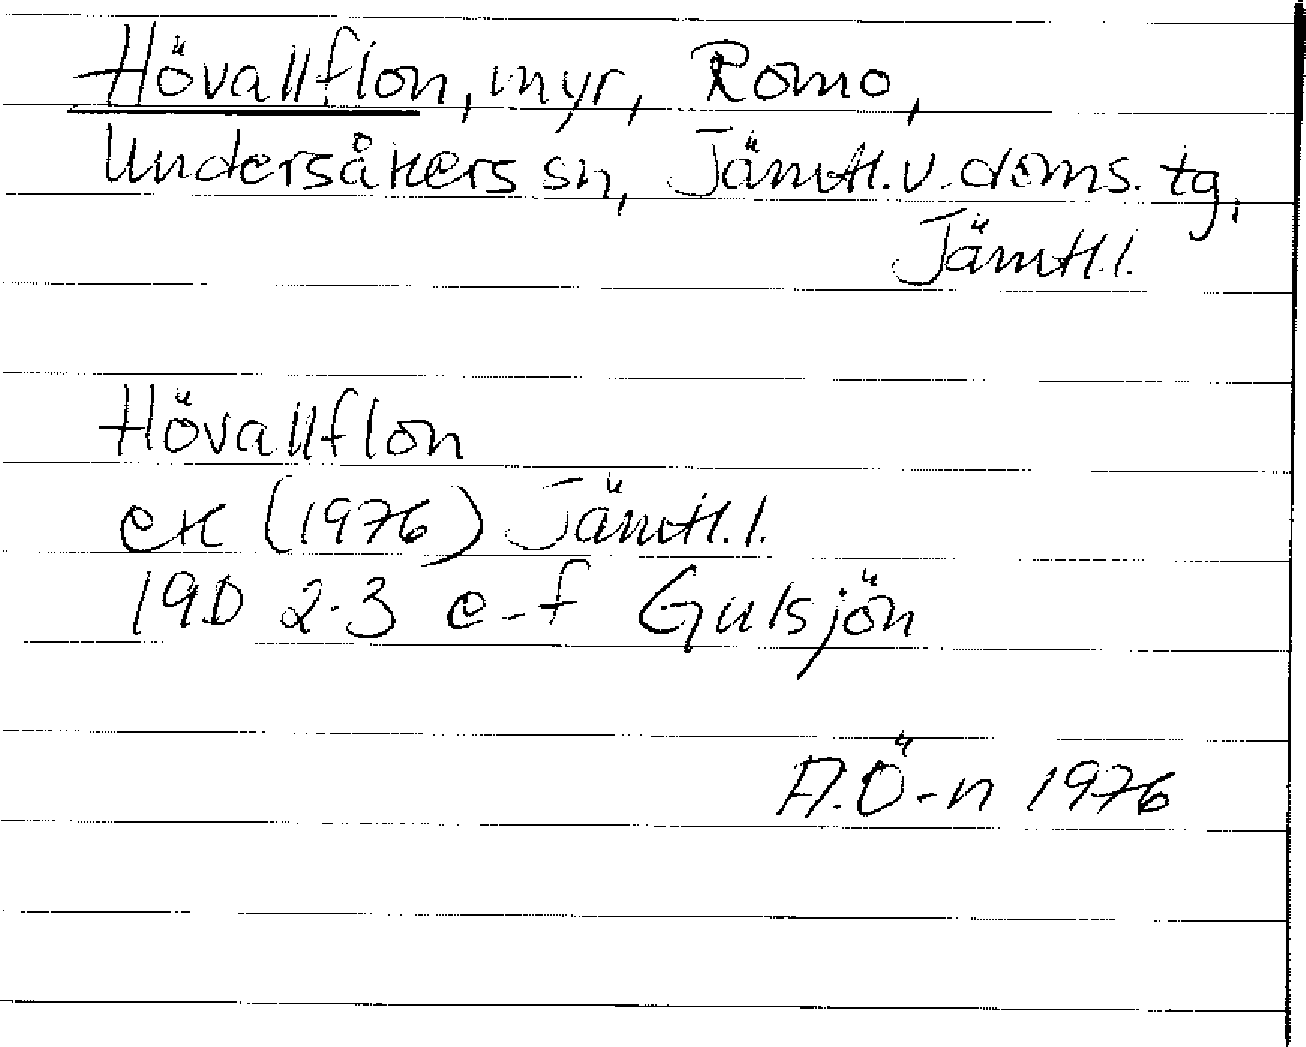 Hövallflon, myr, Romo,
Undersåkers sn, Jämtl. v. doms. tg,
Jämtl. l.
Hövallflon
ek (1976) Jämtl. l.
19D 2-3 e-f Gulsjön
A.Ö-n 1976